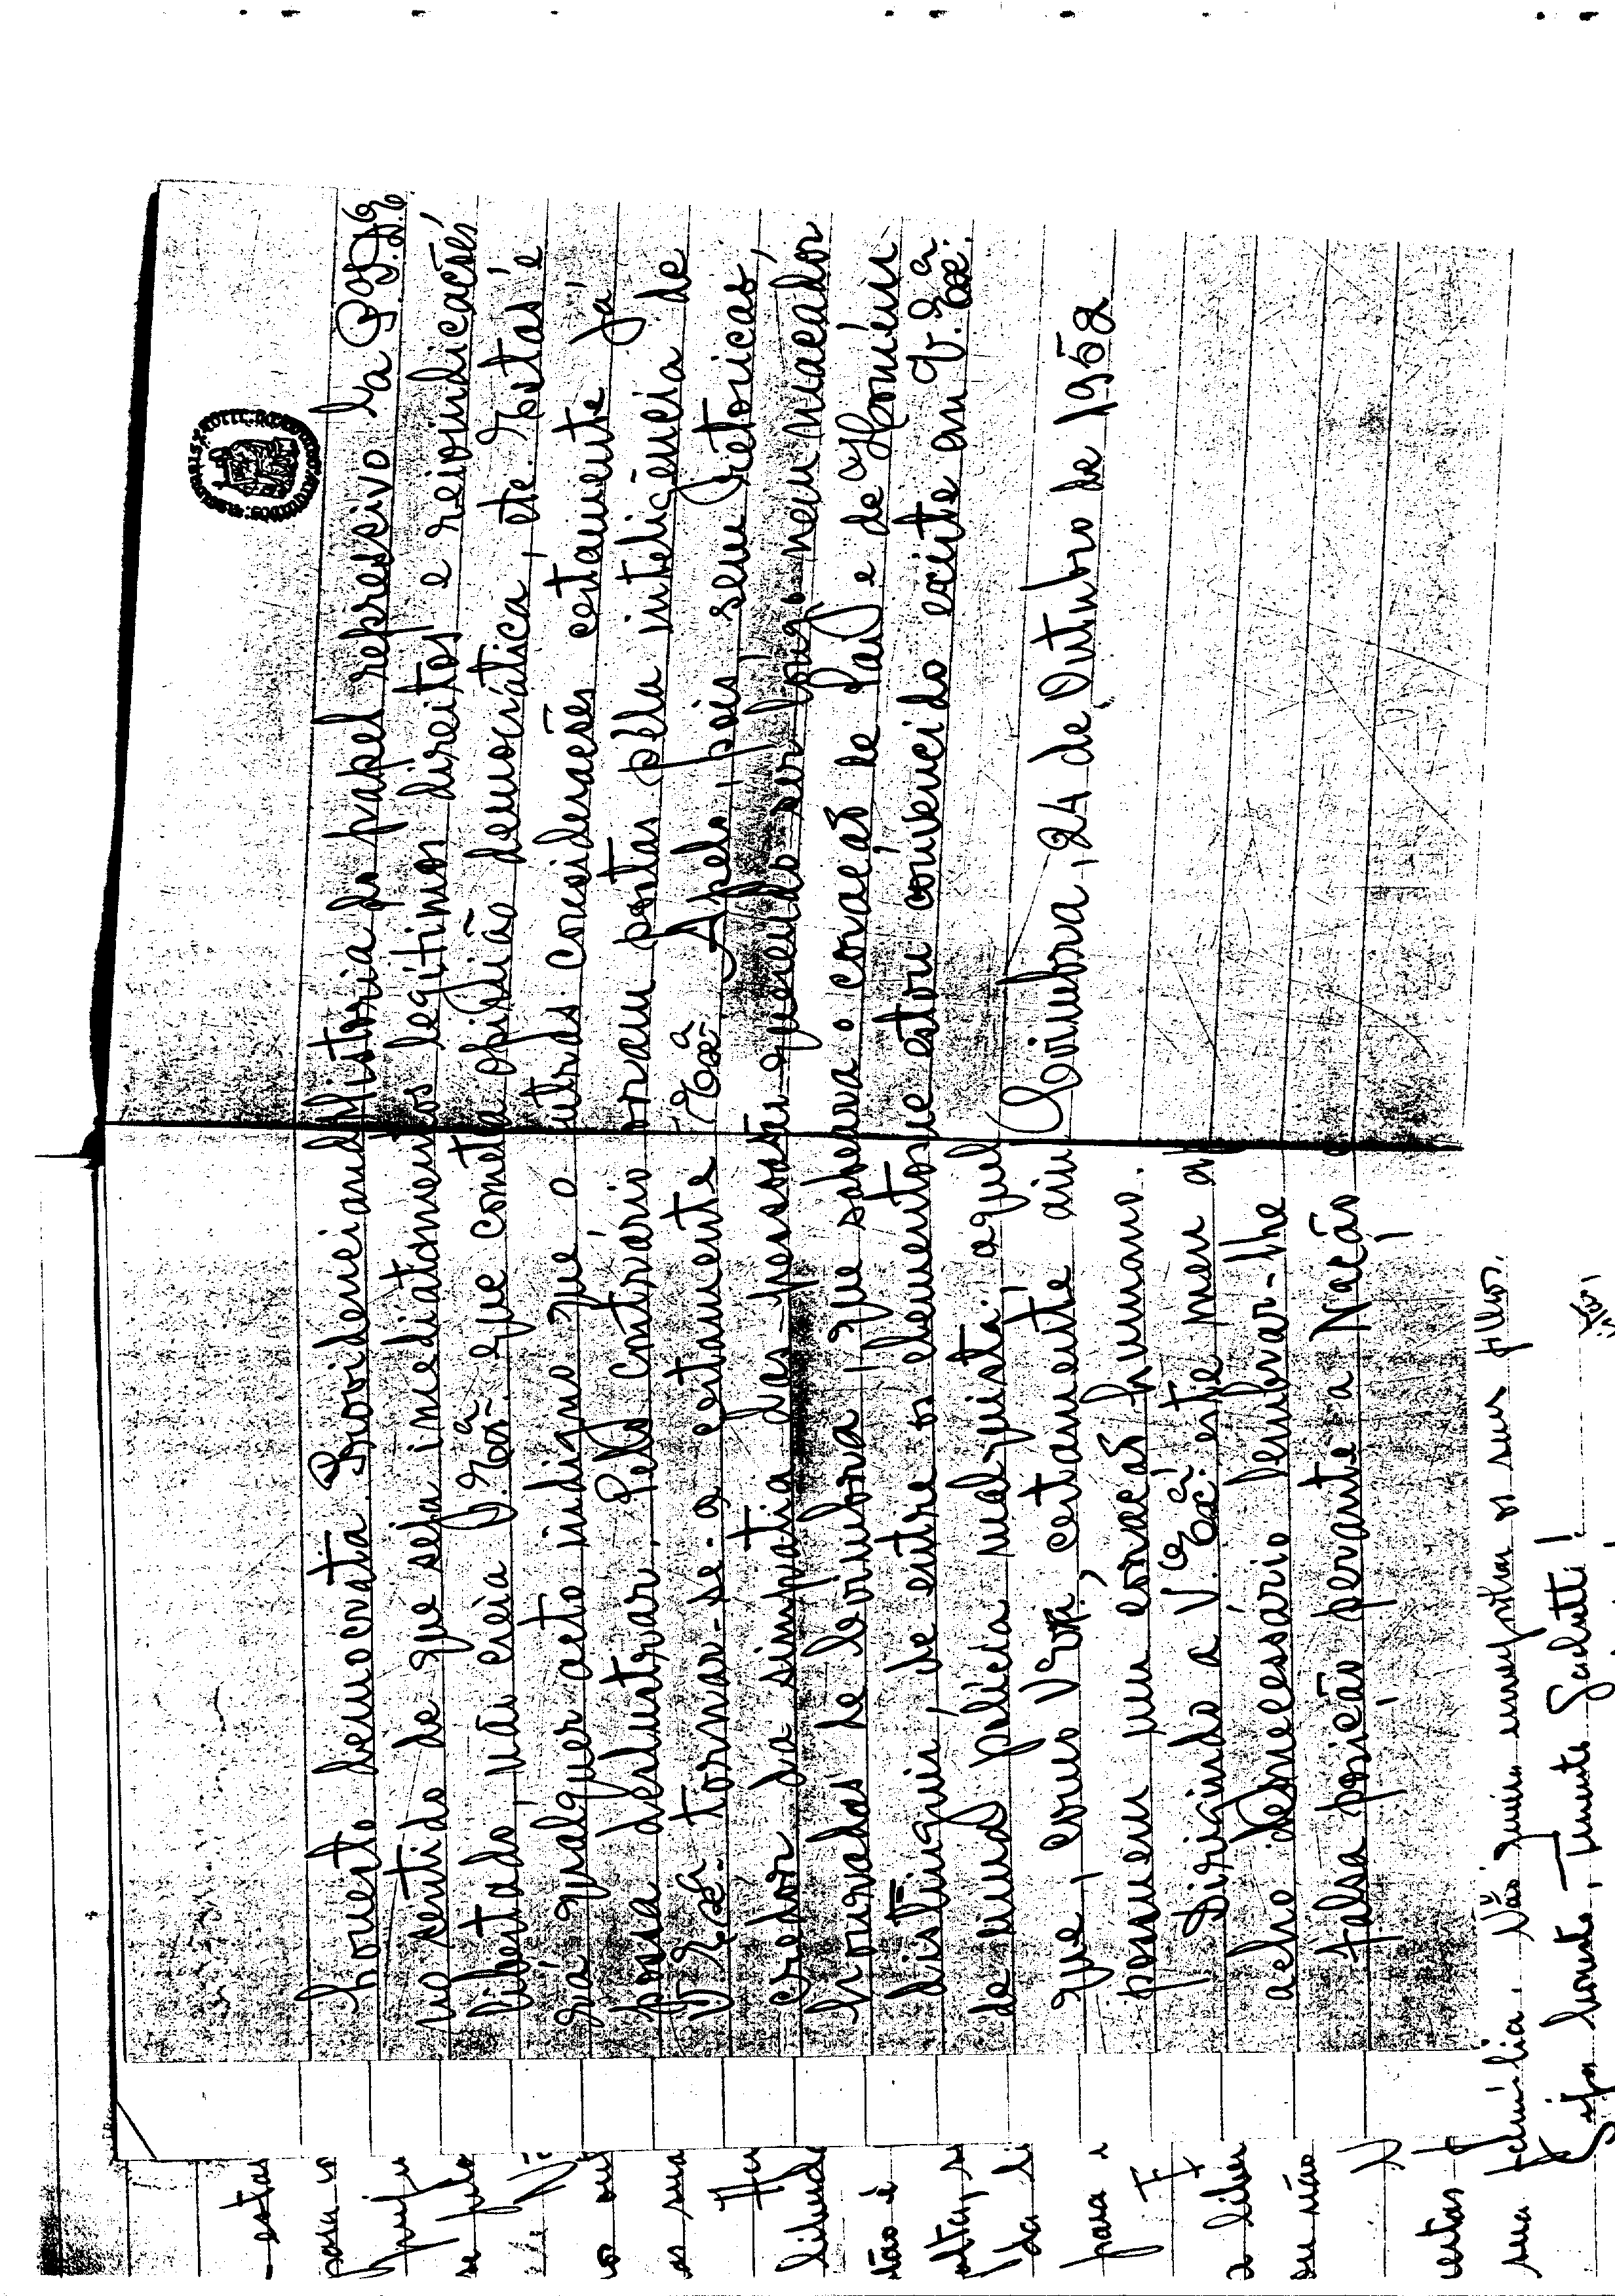 honesto democrata. Providenciand
no sentido de que seja imediatamen
libertado, não creia V. Exª. que comet
rá qualquer acto indigno que o
possa deslustrar. Pelo contrário
V. Exª. tornar-se-a certamente
credor da simpatia das pessoas
honradas de Coimbra, que saberá
distinguir, de entre os elementos
de uma polícia malquista aquel
que, como V. Exa, certamente ain
possuem um coração humano.
Dirigindo a V. Exª. este meu a
acho desnecessário lembrar-lhe
falsa posição perante a Nação
História do papel repressivo da P.I.D.E
tos legítimos direitos e reivindicações
opinião democrática, etc. Estas e
utras considerações certamente já
oram postas pela inteligência de
Exª. Apelo, pois, sem retoricas,
querendo ser longo nem maçador
o coração de Pai e de Homem
ue estou convencido existe em V. Exª.
Coimbra, 24 de Outubro de 1958
- estas
para
se
os sua
Atitude
tão é
alta, se
da li
para
a liber
ou não
estas
sua família. Não
os seus filhos.
Seja honesto, Tenente Sachetti!